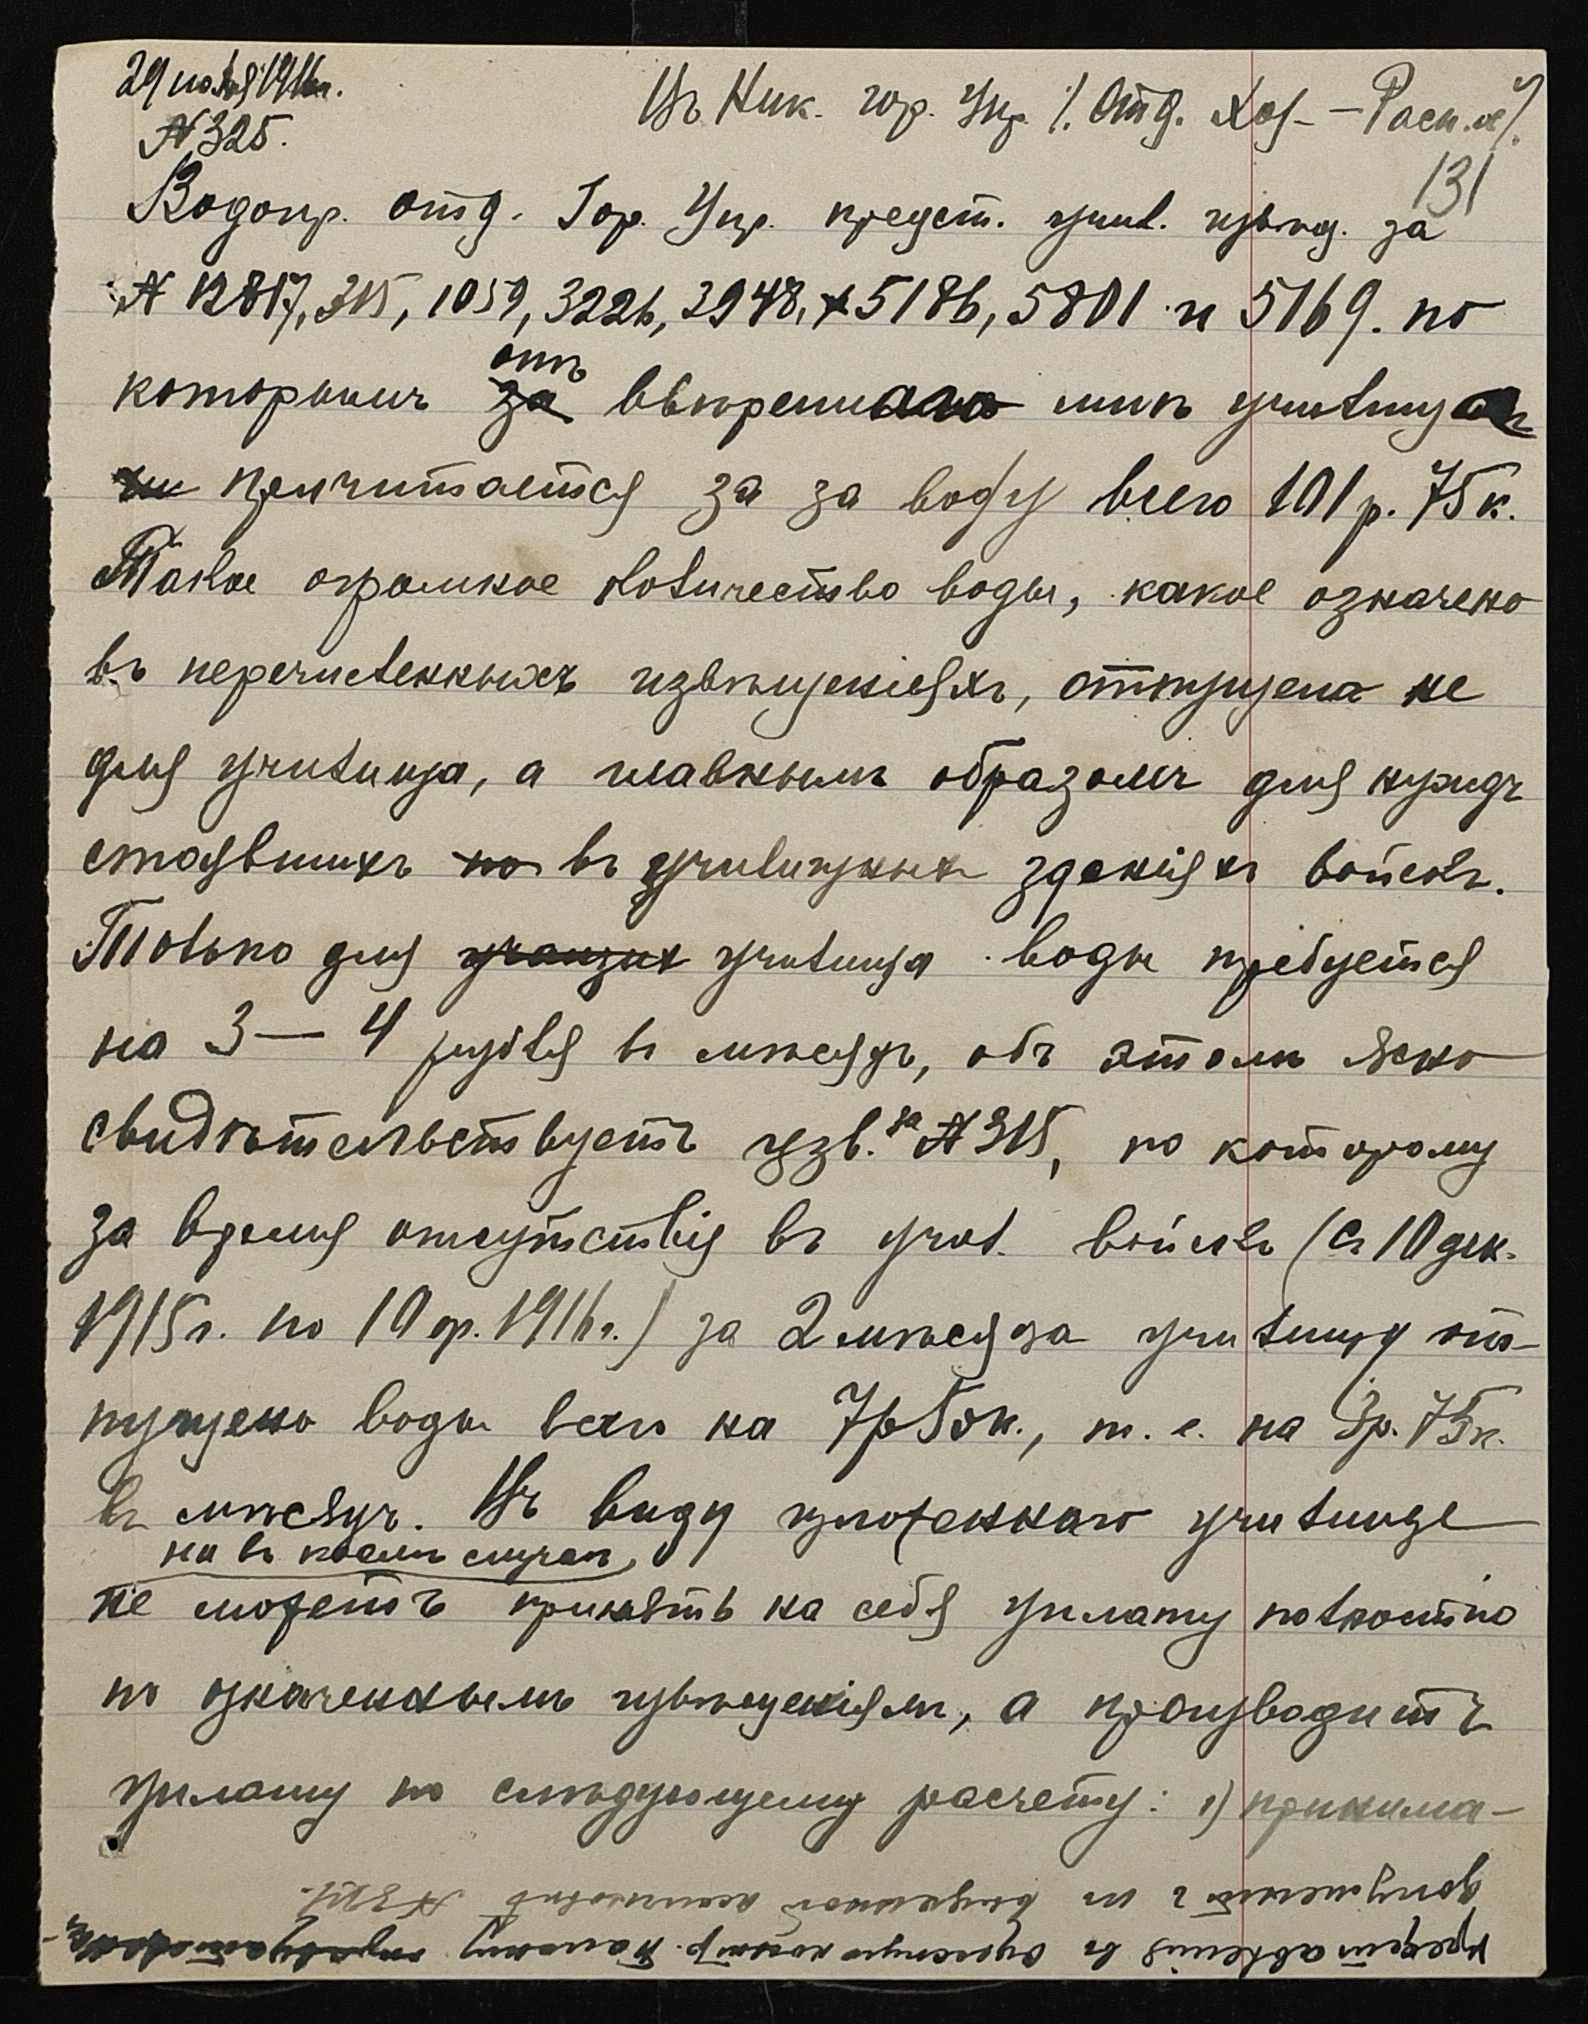 29 ноября 1916 г.
№ 325.
Въ Ник. гор. Упр. /. Отд. Хоз. – Расп. /.
131
Водопр. отд. Гор. Упр. предст. учил. извѣщ. за
№ 12817, 315, 1059, 3226, 3948, 5186, 5801 и 5169. по
которымъ за отъ ввѣреннаго мнѣ училища
причитается за за воду всего 101 р. 75 к.
Такое огромное количество воды, какое означено
въ перечисленныхъ извѣщеніяхъ, отпущена не
для училища, а главнымъ образомъ для нуждъ
стоявшихъ по въ училищныхъ зданіяхъ войскъ.
Только для учащихъ училища воды требуется
на 3 – 4 рубля въ мѣсяцъ, объ этомъ ясно
свидѣтельствуетъ изв. за № 315, по которому
за время отсутствія въ учил. войскъ (съ 10 дек.
1915 г. по 10 фр. 1916 г.) за 2 мѣсяца училищу от-
пущено воды всего на 7 р 50 к., т. е. на 3 р. 75 к.
въ мѣсяцъ. Въ виду изложеннаго училище
ни въ коемъ случаѣ
не можетъ принять на себя уплату полностью
по означеннымъ извѣщеніямъ, а производитъ
уплату по слѣдующему расчету: 1) принима-
представленія въ контр. Палату
документъ изъ выданной ассигновкѣ №